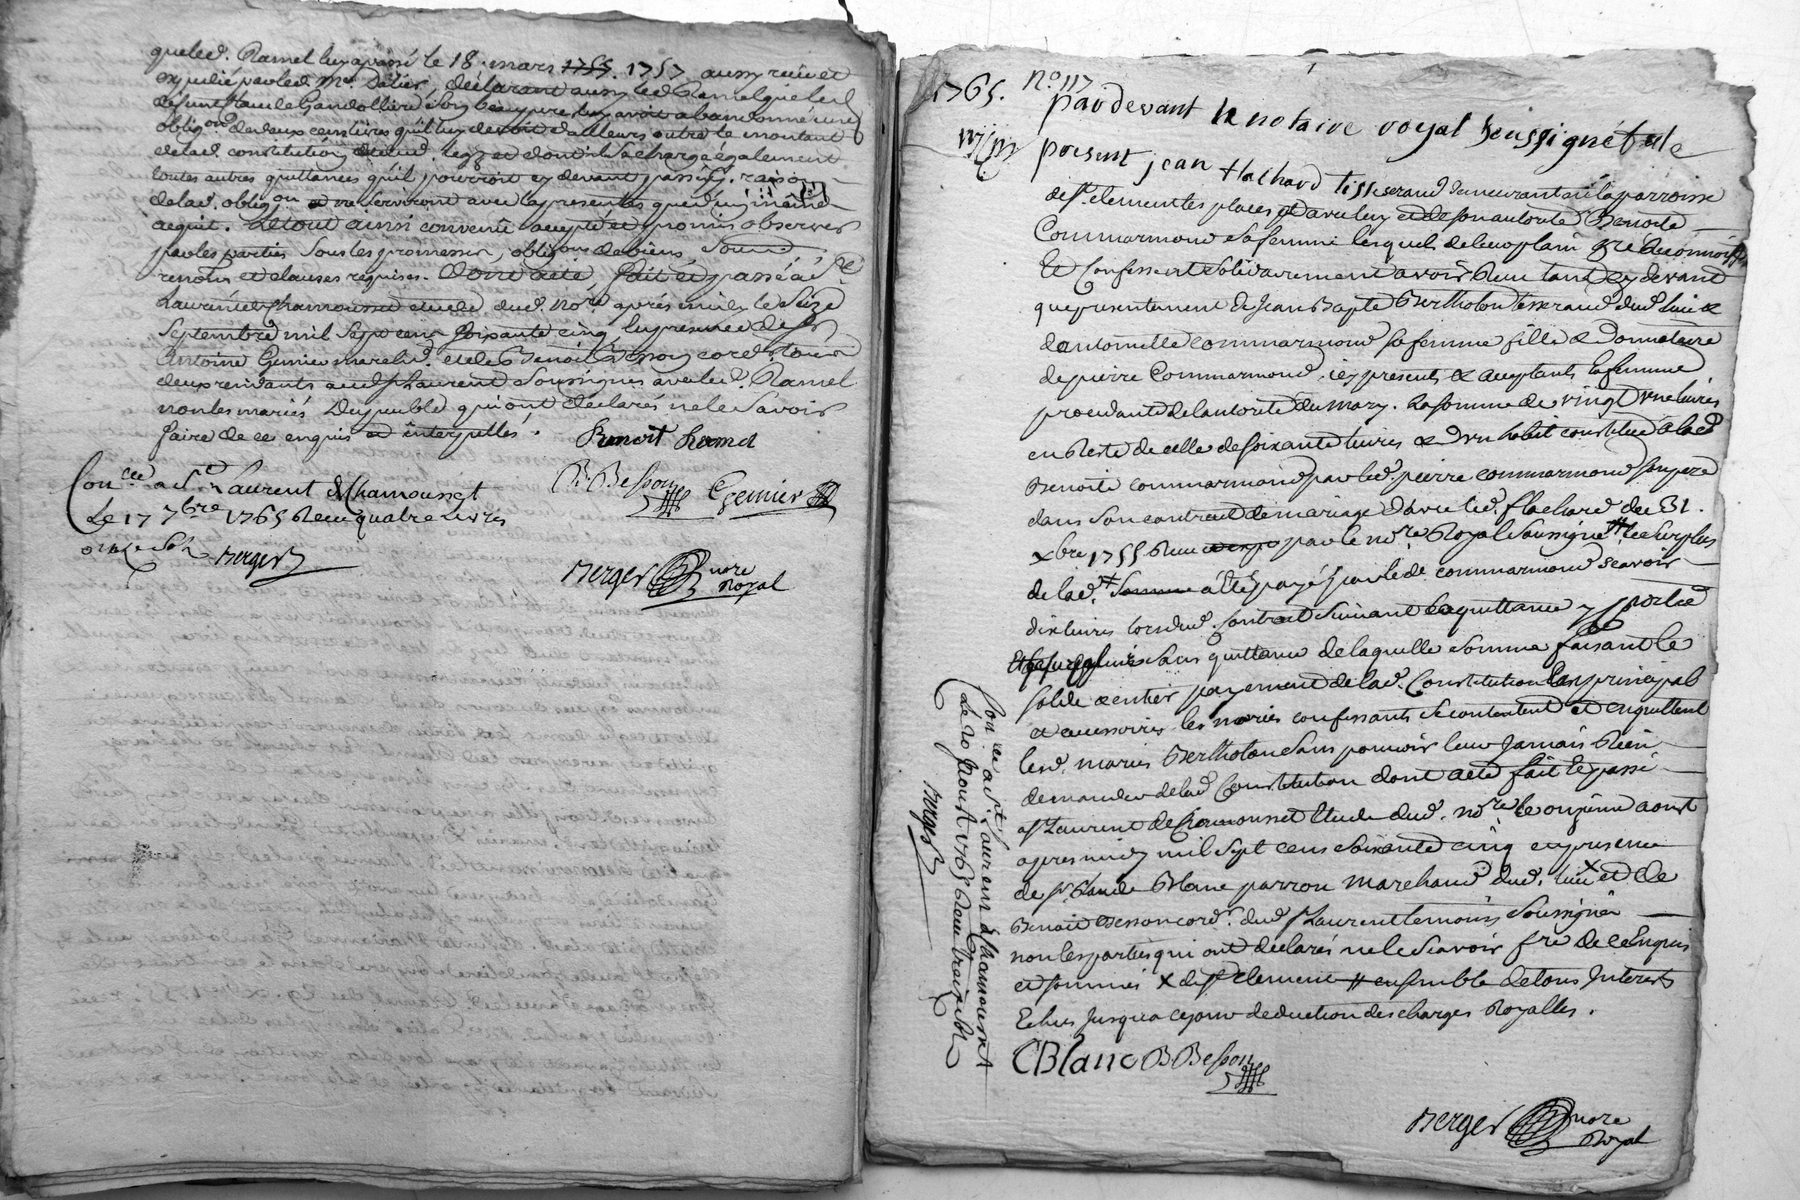 queled. Ramel luy a passé le 18. mars 1755. 1757 aussy reçu et
expedié par led. Me. Délier, déclarant aussy led Ramel que led
defunt Claude Gandolliere son beaupere luy avoit abandonné une
oblig.on de deux cens livres qu'il luy devoit d'ailleurs outre le montant
de lad. constitution dud. legz et dont il se charge également
toutes autres quittances qu'il pourroit cy devant passé p. raison
de lad. oblig.on ne serviront avec la presente que d'un même
acquit. Letout ainsi convenu accepté et promis observer
par les parties sous les promesses, oblig.ons de biens, soum.
renon.s et clauses requises. dont acte fait et passé à St.
Laurent de chamousset etude dud. No.re après midy le seize
septembre mil sept cens soixante cinq en presence de
Antoine Genier march.d et de Benoit Besson cord.r tous
deux residants aud. St Laurent soussignés avec led. Ramel
non les mariés Dupeuble qui ont déclarés ne le savoir
faire de ce enquis et interpellés.
Benoit Ramel
B. Besson Genier
Con.llé a St. Laurent de Chamousset
Le 17 7bre 1765 Reçu quatre livres
onze sols Berger
Berger no.re
Royal
1765. No. 117
par devant le notaire royal soussigné fut
present jean flachard tisserand demeurant en la parroisse
de St. clement les places et avec luy et de son autorité Benoite
Commarmond sa femme lesquels de leur plain gré reconnoissent
Et Confessent solidairement avoir Reçu tant cy devant
que presentement de Jean Bapte Bertholon tisserand dud. lieu &
d'antoinette commarmond sa femme fille & Donnataire
de pierre Commarmond, icy presents & acceptants la femme
procedante de l'autorité du mary. La somme de vingt une livres
en Reste de celle de soixante livres & d'un habit constitué à lad
Benoite commarmond par led. pierre commarmond son pere
dans son contract de mariage avec led. flachard du 31.
xbre 1755 Reçu par le no.re Royal soussigné # Le surplus
de lad. # somme a été payé par led. commarmond sçavoir
dix livres lors dud. contract suivant la quittance y portée
sans quittance de laquelle somme faisant le
solde & entier payement de lad. Constitution en principal
et accessoires les mariés confessants se contentent et en quittent
lesd. mariés Bertholon sans pouvoir leur jamais Rien
demander de lad Constitution dont acte fait et passé
a St Laurent de Chamousset Etude dud. no.re le onzieme aoust
apres midy mil sept cens soixante cinq en presence
de Sr. Claude Blanc parron marchand dud. lieu x et de
Benoit Besson cord.r dud St Laurent temoins soussignés
non les parties qui ont declarés ne le sçavoir f.re de ce Enquis
et sommés x de St clement # ensemble de tous Interets
Echus jusqu'a ce jour deduction des charges Royalles.
CBlanc B Besson
Berger no.re
Royal
Con.llé a St. Laurent de Chamousset
Le 20 Aoust 1765 Reçu treize sols
Berger